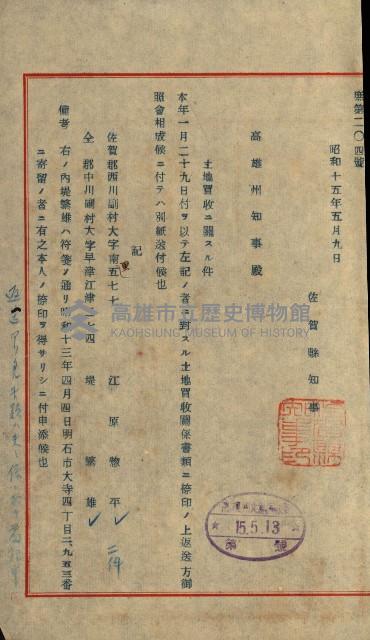 庶第二〇四號
昭和十五年五月九日
佐賀縣知事
高雄州知事殿
土地買收ニ關スル件
本年一月二十九日付ヲ以テ左記ノ者ニ對スル土地買收關係書類ニ捺印ノ上返送方御
照會相成候ニ付テハ別紙送付候也
記
佐賀郡西川副村大字南里五七七 江原惣平 二件
仝郡中川副村大字早津江津 七四 堤繁雄
備考 右ノ內堤繁雄ハ符箋ノ通リ昭和十三年四月四日明石市大寺四丁目二、九五三番
ニ寄留ノ者ニ有之本人ノ捺印ヲ得サリシニ付申添候也
15.5.13
高雄市立歷史博物館
KAOHSIUNG MUSEUM OF HISTORY